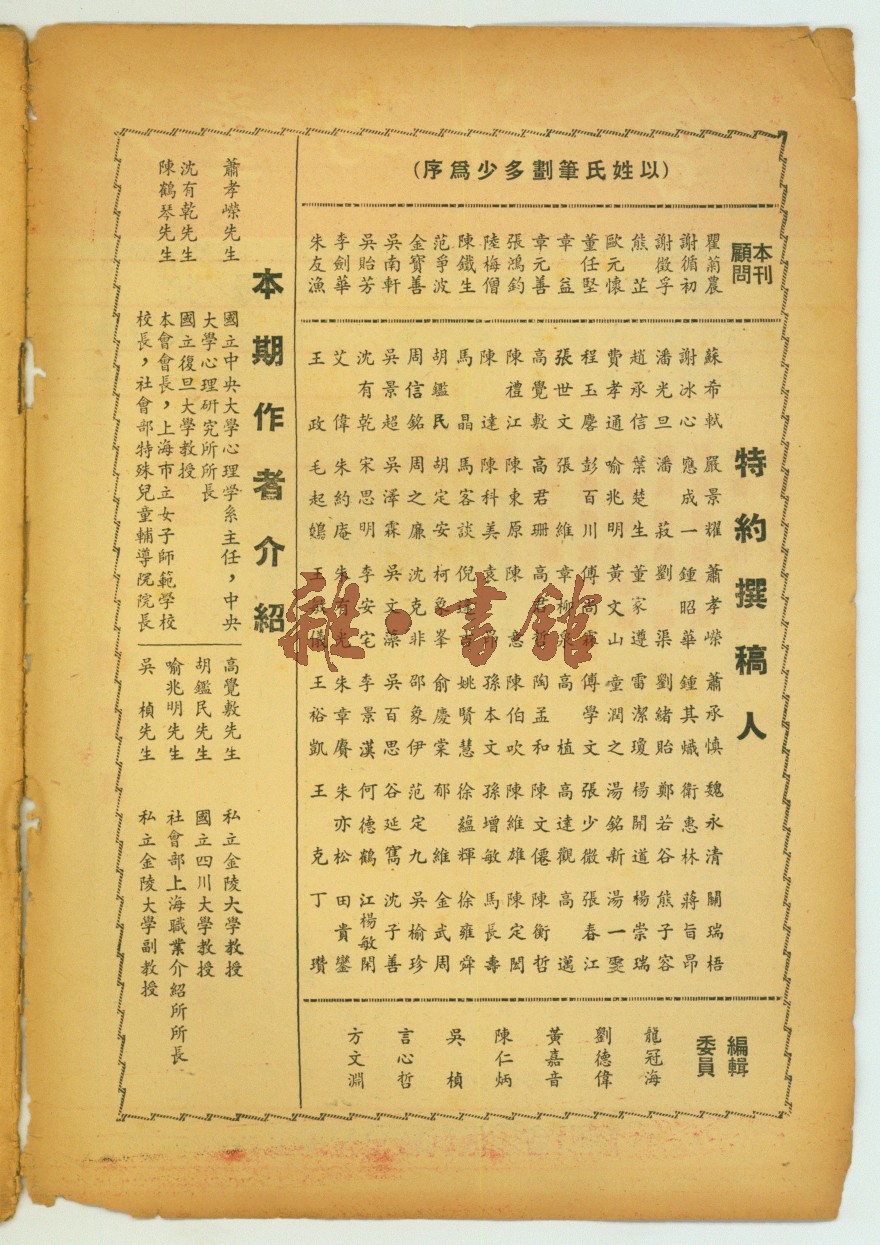 （以姓氏筆劃多少爲序）
本刊
顧問
瞿菊農
謝循初
謝徵孚
熊　芷
歐元懷
董任堅
章　益
章元善
張鴻鈞
陸梅僧
陳鐵生
范爭波
金寶善
吳南軒
吳貽芳
李劍華
朱友漁
特約撰稿人
蘇希軾 嚴景耀 蕭孝嶸 蕭承慎 魏永清 關瑞梧
謝冰心 應成一 鍾昭華 鍾其熾 衛惠林 蔣旨昂
潘光旦 潘　菽 劉　渠 劉緒貽 鄭若谷 熊子容
趙承信 葉楚生 董家遵 雷潔瓊 楊開道 楊崇瑞
費孝通 喻兆明 黃文山 童潤之 湯銘新 湯一雯
程玉麐 彭百川 傅尚霖 傅學文 張少微 張春江
張世文 張　維 章柳泉 高　植 高達觀 高　邁
高覺敷 高君珊 高君哲 陶孟和 陳文僊 陳衡哲
陳禮江 陳東原 陳 陳伯吹 陳維雄 陳定閎
陳　達 陳科美 袁 孫本文 孫增敏 馬長壽
馬　晶 馬客談 倪逢吉 姚賢慧 徐蘊輝 徐雍舜
胡鑑民 胡定安 柯象峯 俞慶棠 郁　維 金武周
周信銘 周之廉 沈克非 邵象伊 范定九 吳榆珍
吳景超 吳澤霖 吳文藻 吳百思 谷延雋 沈子善
沈有乾 宋思明 李安宅 李景漢 何德鶴 江楊敏閑
艾　偉 朱約庵 朱有光 朱章賡 朱亦松 田貴鑾
王　政 毛起鵕 王儀 王裕凱 王　克 丁　瓚
編輯
委員
龍冠海
劉德偉
黃嘉音
陳仁炳
吳　楨
言心哲
方文淵
本期作者介紹
蕭孝嶸先生　國立中央大學心理學系主任，中央
大學心理研究所所長
沈有乾先生　國立復旦大學教授
陳鶴琴先生　本會會長，上海市立女子師範學校
校長，社會部特殊兒童輔導院院長
高覺敷先生　私立金陵大學教授
胡鑑民先生　國立四川大學教授
喻兆明先生　社會部上海職業介紹所所長
吳　楨先生　私立金陵大學副教授
雜·書館